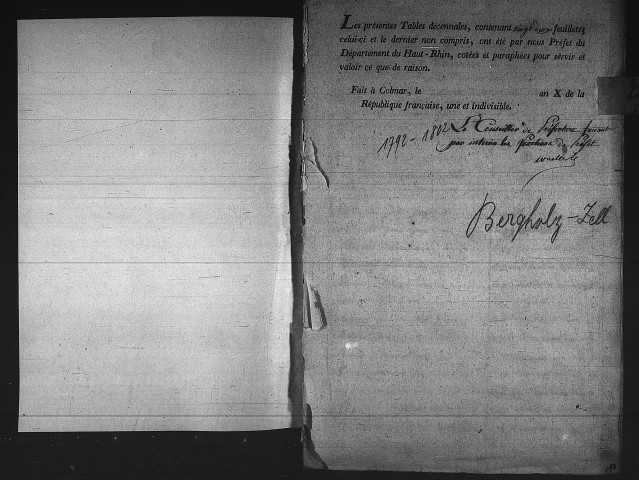 Les présentes Tables décennales, contenant vingt deux feuillets
celui-ci et le dernier non compris, ont été par nous Préfet du
Département du Haut-Rhin, cotées et paraphées pour servir et
valoir ce que de raison.
Fait à Colmar, le an X de la
République française, une et indivisible.
1792-1802
Le Conseiller de Préfecture faisant
par interim les fonctions de Préfet
Bergholz-Zell